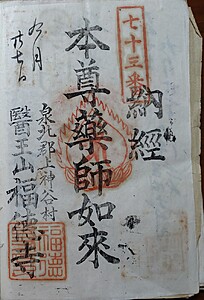 七十三番
納経
本尊藥師如來
九月
六七日
泉北郡上神谷村
醫王山福德寺